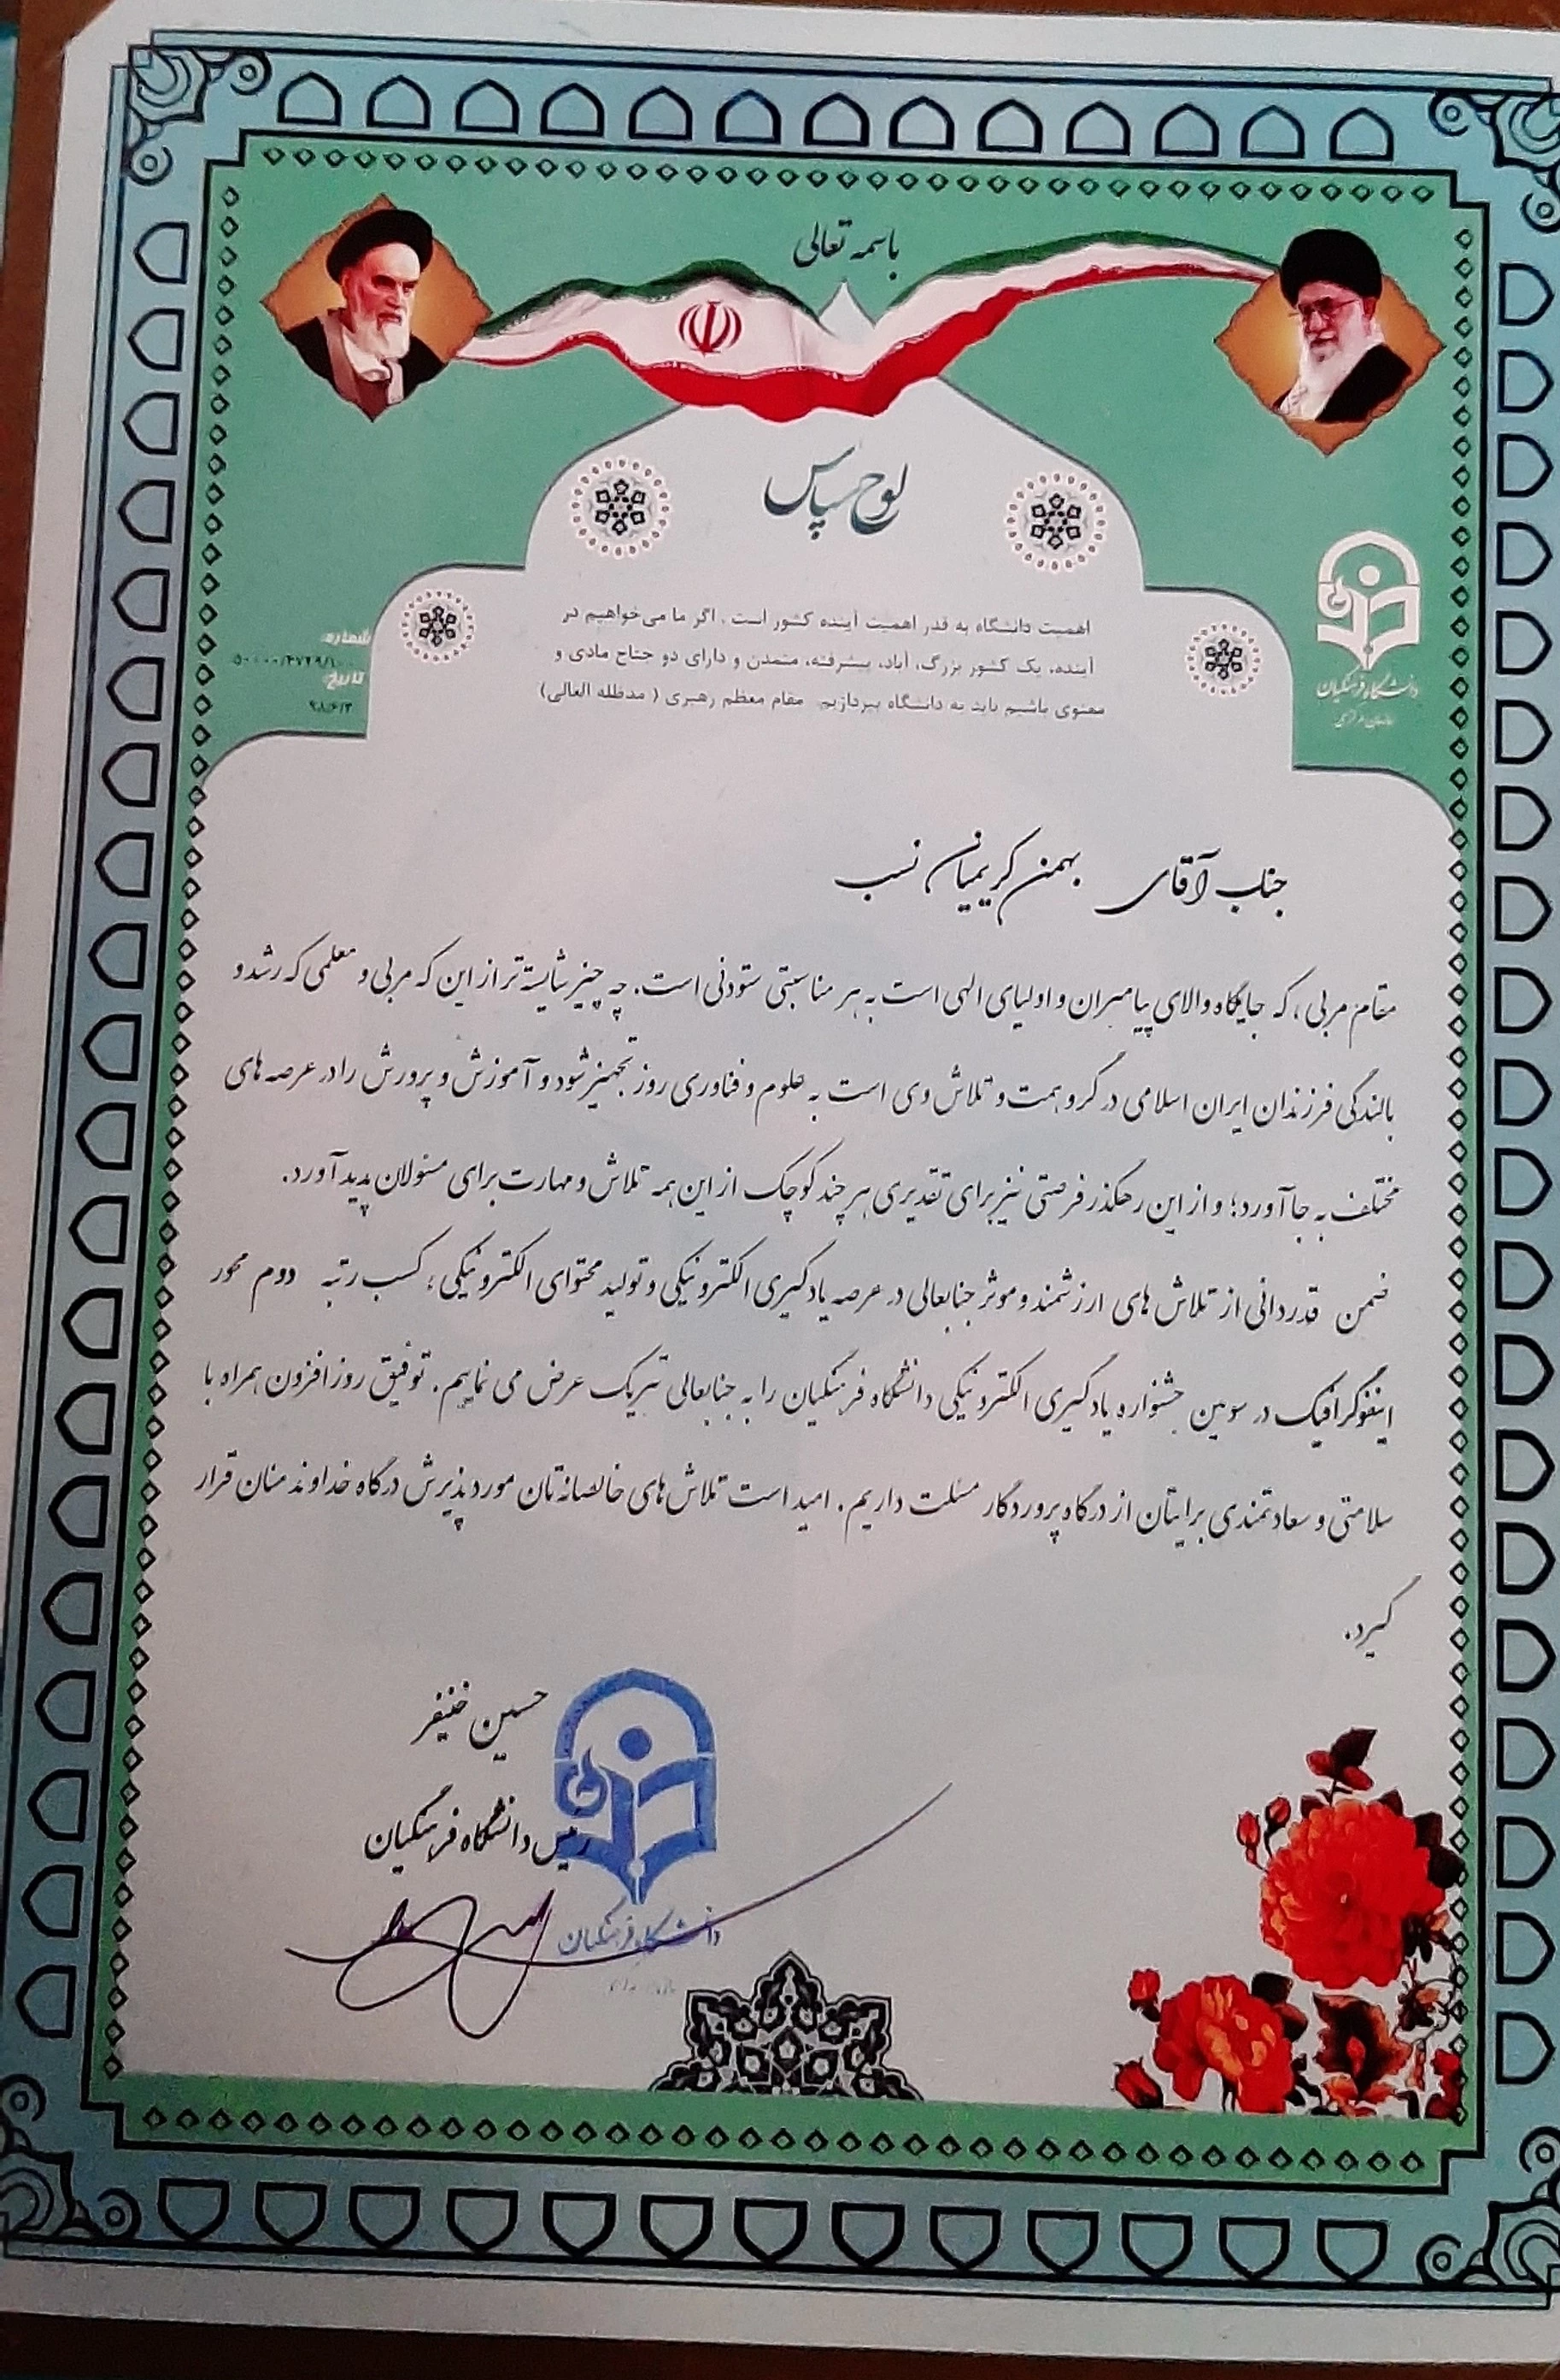 باسمه تعالی
لوح سپاس
اهمیت دانشگاه به قدر اهمیت آینده کشور است . اگر ما می‌خواهیم در
آینده، یک کشور بزرگ، آباد، پیشرفته، متمدن و دارای دو جناح مادی و
معنوی باشیم باید به دانشگاه بپردازیم. مقام معظم رهبری ( مدظله العالی)
شماره
۵۰۰۰۰/۴۷۲۹/۱۰۰
تاریخ
۹۸/۶/۳
دانشگاه فرهنگیان
سازمان مرکزی
جناب آقای بهمن کریمیان نسب
مقام مربی ، که جایگاه والای پیامبران و اولیای الهی است به هر مناسبتی ستودنی است. چه چیز شایسته تر از این که مربی و معلمی که رشد و
بالندگی فرزندان ایران اسلامی در گرو همت و تلاش وی است به علوم و فناوری روز تجهیز شود و آموزش و پرورش را در عرصه های
مختلف به جا آورد؛ و از این رهگذر فرصتی نیز برای تقدیری هر چند کوچک از این همه تلاش و مهارت برای مسئولان پدید آورد.
ضمن قدردانی از تلاش های ارزشمند و موثر جنابعالی در عرصه یادگیری الکترونیکی و تولید محتوای الکترونیکی، کسب رتبه دوم محور
اینفوگرافیک در سومین جشنواره یادگیری الکترونیکی دانشگاه فرهنگیان را به جنابعالی تبریک عرض می نماییم. توفیق روزافزون همراه با
سلامتی و سعادتمندی برایتان از درگاه پروردگار مسئلت داریم. امید است تلاش های خالصانه تان مورد پذیرش درگاه خداوند منان قرار
گیرد.
حسین خنیفر
رئیس دانشگاه فرهنگیان
دانشگاه فرهنگیان